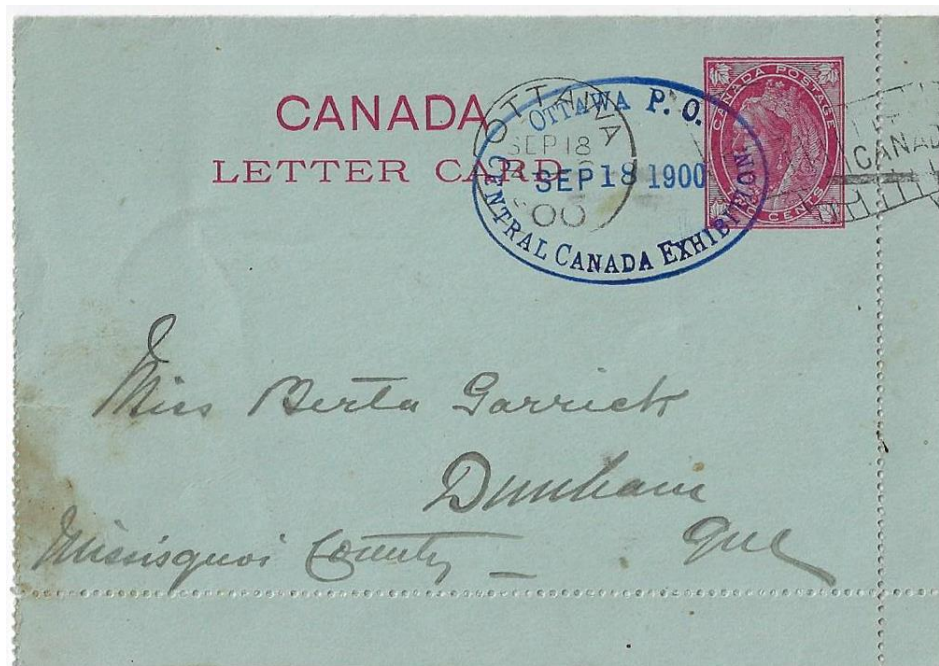 CANADA
LETTER CARD
OTTAWA
SEP 18
00
OTTAWA P. O.
SEP 18 1900
CENTRAL CANADA EXHIBITION
CANADA POSTAGE
CENTS
CANAD
Miss Berta Garrick
Dunham
Missisquoi County – Que